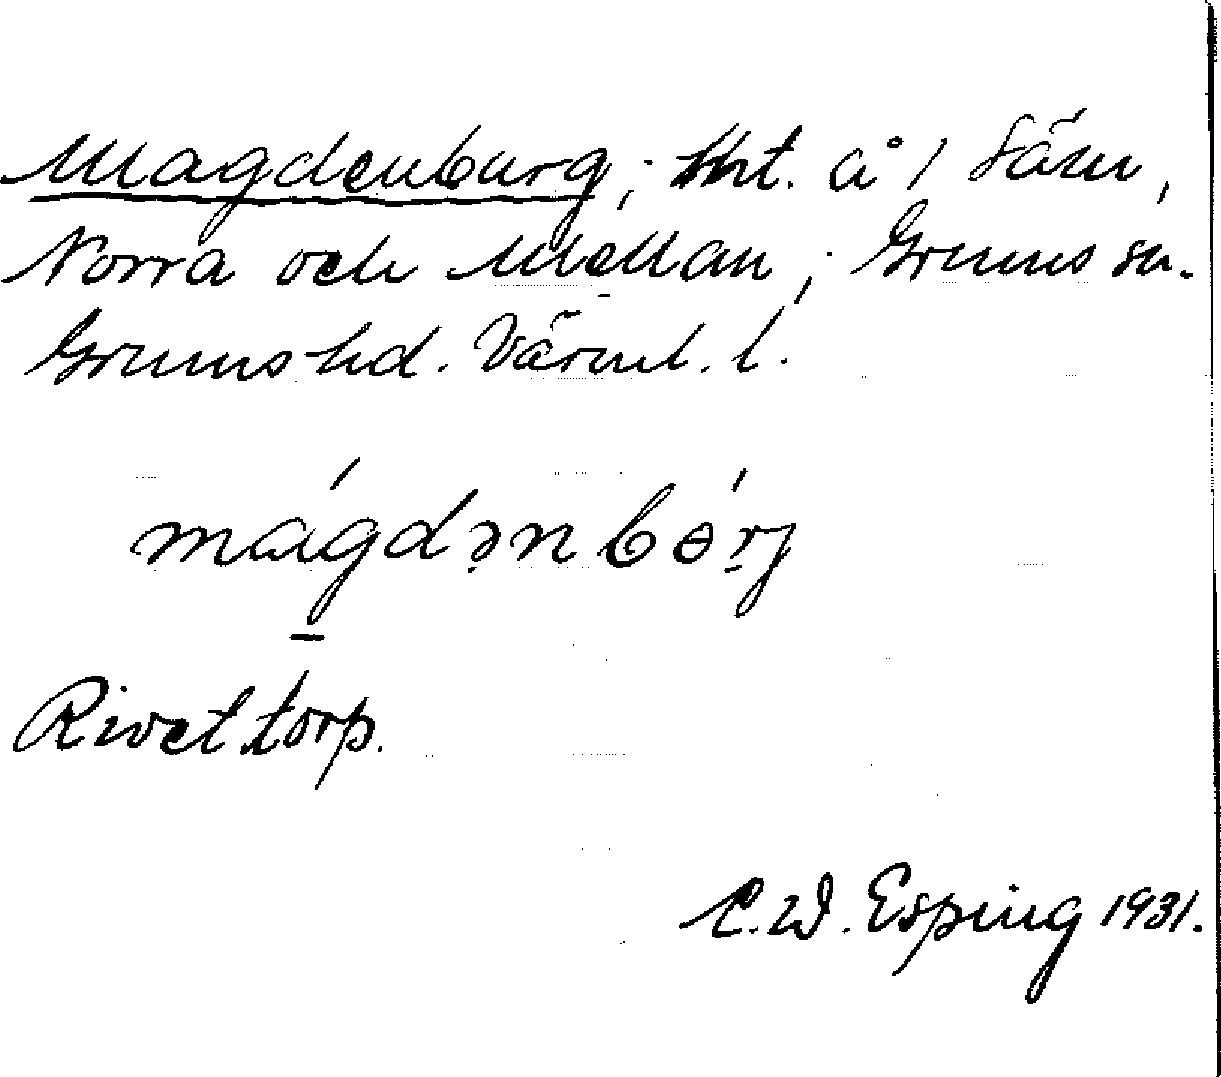 Magdenburg; tht. å 1 Säm,
Norra och Mellan; Grums sn.
Grums hd. Värml. l.
mágdənbörj
Rivet torp.
C.W. Esping 1931.